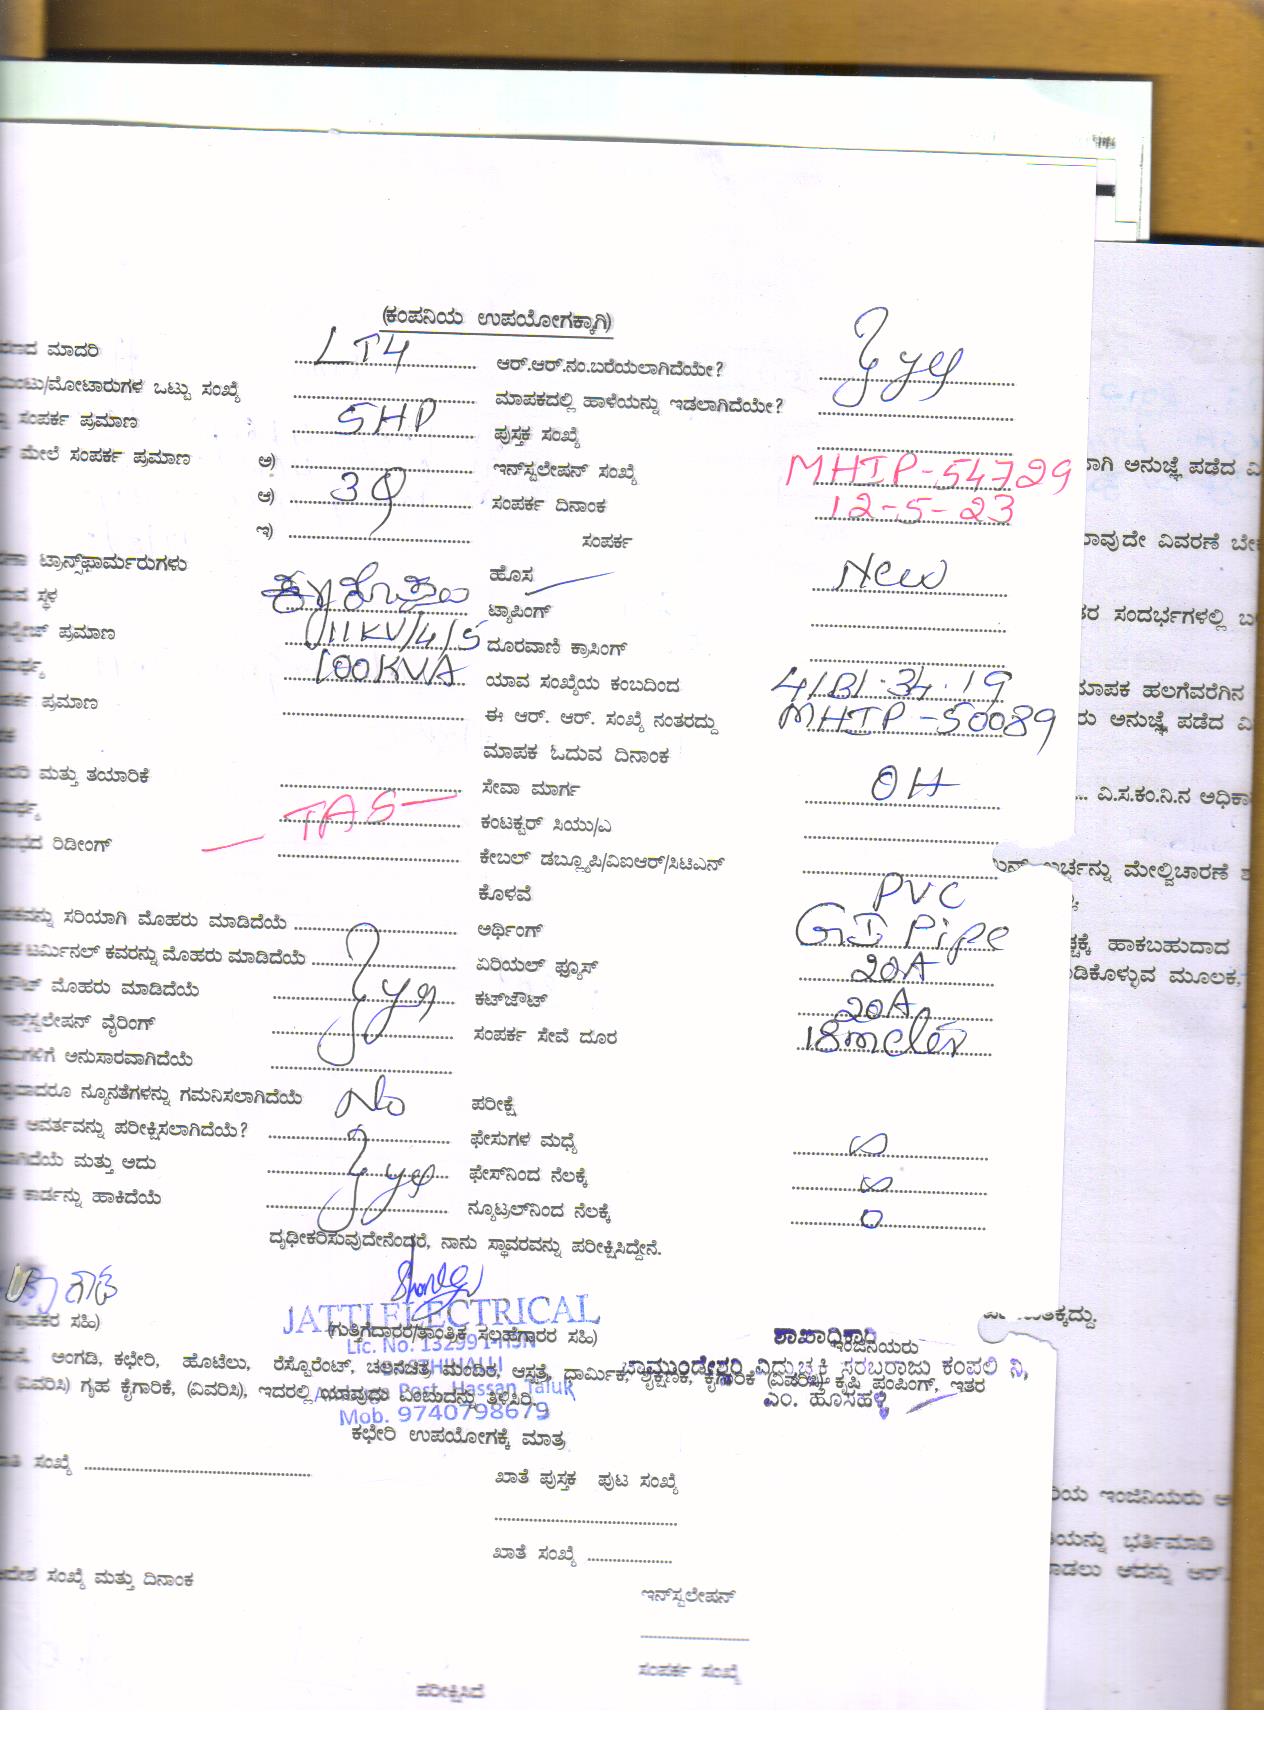 (ಕಂಪನಿಯ ಉಪಯೋಗಕ್ಕಾಗಿ)
ಮಾದರಿ LT4 ಆರ್.ಆರ್.ನಂ.ಬರೆಯಲಾಗಿದೆಯೇ? yes
/ಮೋಟಾರುಗಳ ಒಟ್ಟು ಸಂಖ್ಯೆ ಮಾಪಕದಲ್ಲಿ ಹಾಳೆಯನ್ನು ಇಡಲಾಗಿದೆಯೇ?
ಸಂಪರ್ಕ ಪ್ರಮಾಣ 5HP ಪುಸ್ತಕ ಸಂಖ್ಯೆ
ಮೇಲೆ ಸಂಪರ್ಕ ಪ್ರಮಾಣ ಅ) ಇನ್‌ಸ್ಟಲೇಷನ್ ಸಂಖ್ಯೆ MHIP-54729
ಆ) 3φ ಸಂಪರ್ಕ ದಿನಾಂಕ 12-5-23
ಇ) ಸಂಪರ್ಕ
ಟ್ರಾನ್ಸ್‌ಫಾರ್ಮರುಗಳು ಹೊಸ New
ಸ್ಥಳ ಟ್ಯಾಪಿಂಗ್
ಪ್ರಮಾಣ 11KV/4/5 ದೂರವಾಣಿ ಕ್ರಾಸಿಂಗ್
100KVA ಯಾವ ಸಂಖ್ಯೆಯ ಕಂಬದಿಂದ 4/B1.34.19
ಪ್ರಮಾಣ ಈ ಆರ್. ಆರ್. ಸಂಖ್ಯೆ ನಂತರದ್ದು MHIP-50089
ಮಾಪಕ ಓದುವ ದಿನಾಂಕ
ಮತ್ತು ತಯಾರಿಕೆ ಸೇವಾ ಮಾರ್ಗ OH
TAS ಕಂಟಕ್ಟರ್ ಸಿಯು/ಎ
ರಿಡೀಂಗ್ ಕೇಬಲ್ ಡಬ್ಲ್ಯೂಪಿ/ವಿಐಆರ್/ಸಿಟಿಎಸ್
ಕೊಳವೆ PVC
ಸರಿಯಾಗಿ ಮೊಹರು ಮಾಡಿದೆಯೆ ಅರ್ಥಿಂಗ್ GI Pipe
ಟರ್ಮಿನಲ್ ಕವರನ್ನು ಮೊಹರು ಮಾಡಿದೆಯೆ ಏರಿಯಲ್ ಫ್ಯೂಸ್ 20A
ಮೊಹರು ಮಾಡಿದೆಯೆ yes ಕಟ್‌ಔಟ್ 20A
ವೈರಿಂಗ್ ಸಂಪರ್ಕ ಸೇವೆ ದೂರ 18meter
ಅನುಸಾರವಾಗಿದೆಯೆ
ನ್ಯೂನತೆಗಳನ್ನು ಗಮನಿಸಲಾಗಿದೆಯೆ No ಪರೀಕ್ಷೆ
ಆವರ್ತವನ್ನು ಪರೀಕ್ಷಿಸಲಾಗಿದೆಯೆ? ಫೇಸುಗಳ ಮಧ್ಯೆ ∞
ಮತ್ತು ಅದು yes ಫೇಸ್‌ನಿಂದ ನೆಲಕ್ಕೆ ∞
ಕಾರ್ಡನ್ನು ಹಾಕಿದೆಯೆ ನ್ಯೂಟ್ರಲ್‌ನಿಂದ ನೆಲಕ್ಕೆ 0
ದೃಢೀಕರಿಸುವುದೇನೆಂದರೆ, ನಾನು ಸ್ಥಾವರವನ್ನು ಪರೀಕ್ಷಿಸಿದ್ದೇನೆ.
JATTI ELECTRICAL
ಸಹಿ) (ಗುತ್ತಿಗೆದಾರರ/ತಾಂತ್ರಿಕ ಸಲಹೆಗಾರರ ಸಹಿ) ಶಾಖಾಧಿಕಾರಿ
ಇಂಜಿನಿಯರು
ಚಾಮುಂಡೇಶ್ವರಿ ವಿದ್ಯುಚ್ಛಕ್ತಿ ಸರಬರಾಜು ಕಂಪನಿ ನಿ,
ಅಂಗಡಿ, ಕಛೇರಿ, ಹೊಟೆಲು, ರೆಸ್ಟೊರೆಂಟ್, ಚಲನಚಿತ್ರ ಮಂದಿರ, ಆಸ್ಪತ್ರೆ, ಧಾರ್ಮಿಕ, ಶೈಕ್ಷಣಿಕ, ಕೈಗಾರಿಕೆ (ವಿವರಿಸಿ) ಕೃಷಿ ಪಂಪಿಂಗ್, ಇತರ
(ವಿವರಿಸಿ) ಗೃಹ ಕೈಗಾರಿಕೆ, (ವಿವರಿಸಿ), ಇದರಲ್ಲಿ ಯಾವುದು ಎಂಬುದನ್ನು ತಿಳಿಸಿರಿ.
Post, Hassan Taluk
ಎಂ. ಹೊಸಹಳ್ಳಿ
Mob. 9740798679
ಕಛೇರಿ ಉಪಯೋಗಕ್ಕೆ ಮಾತ್ರ
ಸಂಖ್ಯೆ ಖಾತೆ ಪುಸ್ತಕ ಪುಟ ಸಂಖ್ಯೆ
ಖಾತೆ ಸಂಖ್ಯೆ
ಸಂಖ್ಯೆ ಮತ್ತು ದಿನಾಂಕ
ಇನ್‌ಸ್ಟಲೇಷನ್
ಸಂಪರ್ಕ ಸಂಖ್ಯೆ
ಪರೀಕ್ಷಿಸಿದೆ
ಅನುಜ್ಞೆ ಪಡೆದ
ವಿವರಣೆ
ಸಂದರ್ಭಗಳಲ್ಲಿ
ಮಾಪಕ ಹಲಗೆವರೆಗಿನ
ಅನುಜ್ಞೆ ಪಡೆದ
ವಿ.ಸ.ಕಂ.ನಿ.ನ
ಮೇಲ್ವಿಚಾರಣೆ
ಹಾಕಬಹುದಾದ
ಮೂಲಕ,
ಇಂಜಿನಿಯರು
ಭರ್ತಿಮಾಡಿ
ಅದನ್ನು ಆರ್.